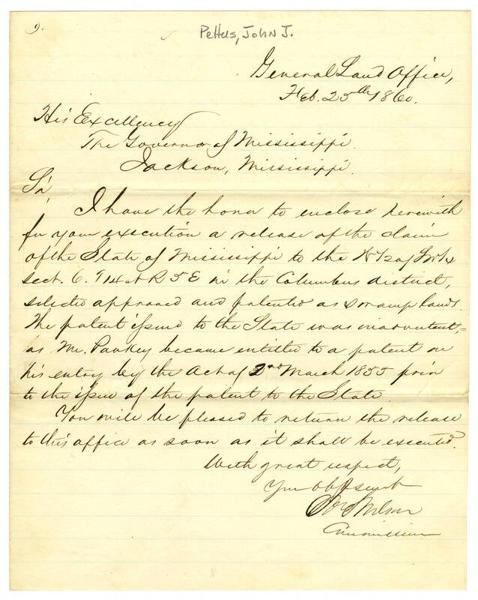 9.
Pettus, John J.
General Land Office,
Feb. 25th 1860.
His Excellency
The Governor of Mississippi.
Jackson, Mississippi.
Sir,
I have the honor to enclose herewith
for your execution a release of the claim
of the State of Mississippi to the N½ of
sect. 6. T14 R 5 E in the Columbus district,
selected approved and patented as swamp land.
The patent issued to the State was inadvertent,
as Mr. became entitled to a patent on
his entry by the Act of 2nd March 1855 prior
to the issue of the patent to the State.
You will be pleased to return the release
to this office as soon as it shall be executed.
With great respect,
Your obt servt
Wilson
Commissioner